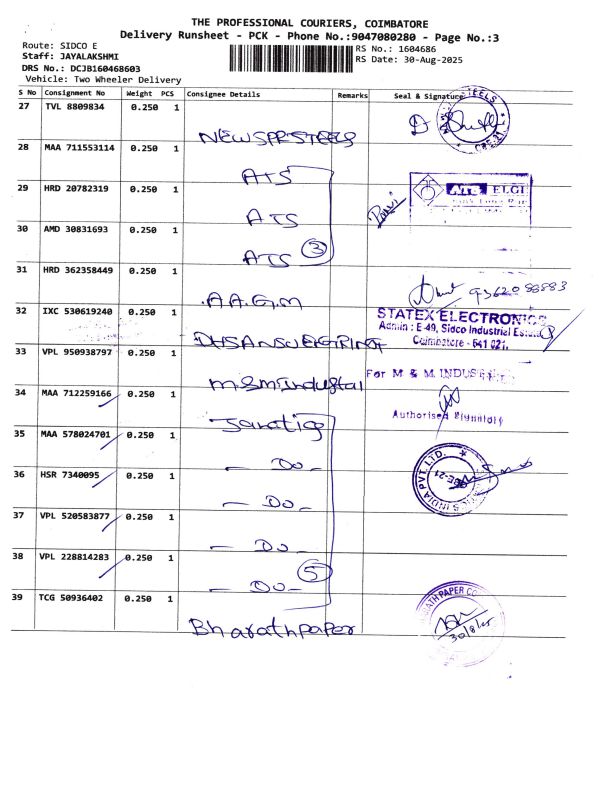 THE PROFESSIONAL COURIERS, COIMBATORE
Delivery Runsheet - PCK - Phone No.:9047080280 - Page No.:3
Route: SIDCO E
Staff: JAYALAKSHMI
DRS No.: DCJB160468603
Vehicle: Two Wheeler Delivery
RS No.: 1604686
RS Date: 30-Aug-2025
S No Consignment No Weight PCS Consignee Details Remarks Seal & Signature
27 TVL 8809834 0.250 1
NEWSPRSTEELS
28 MAA 711553114 0.250 1
ATS
29 HRD 20782319 0.250 1
ATS
ELGI
30 AMD 30831693 0.250 1
ATS 3
31 HRD 362358449 0.250 1
A.A.G.M
9362088883
32 IXC 530619240 0.250 1
STATEX ELECTRONICS
Admin : E-49, Sidco Industrial Estate
Coimbatore - 641 021.
33 VPL 950938797 0.250 1
For M & M. INDUS
34 MAA 712259166 0.250 1
Authorised Signatory
35 MAA 578024701 0.250 1
- Do -
INDIA PVT. LTD.
36 HSR 7340095 0.250 1
- Do -
37 VPL 520583877 0.250 1
- Do -
38 VPL 228814283 0.250 1
- Do - 5
39 TCG 50936402 0.250 1
Bharathpaper
PAPER CO
30/8/25